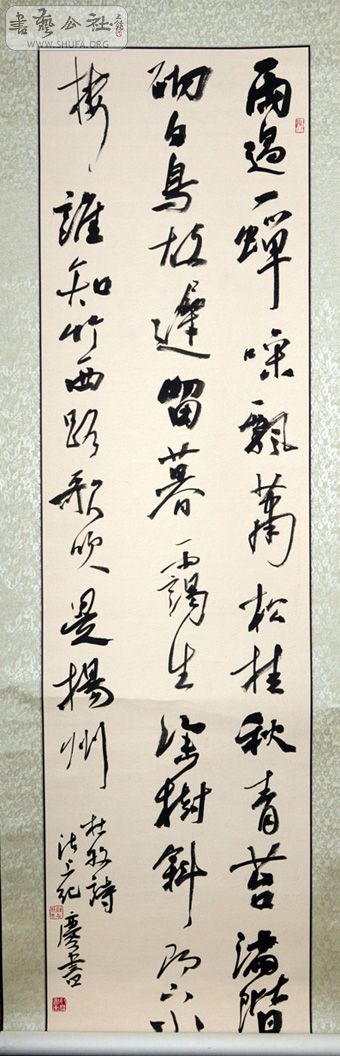 書藝公社
WWW.SHUFA.ORG
雨過一蟬噪飄蕭松桂秋青苔滿階
砌白鳥故遲留暮靄生深樹斜陽下小
樓誰知竹西路歌吹是揚州
杜牧詩
慶書